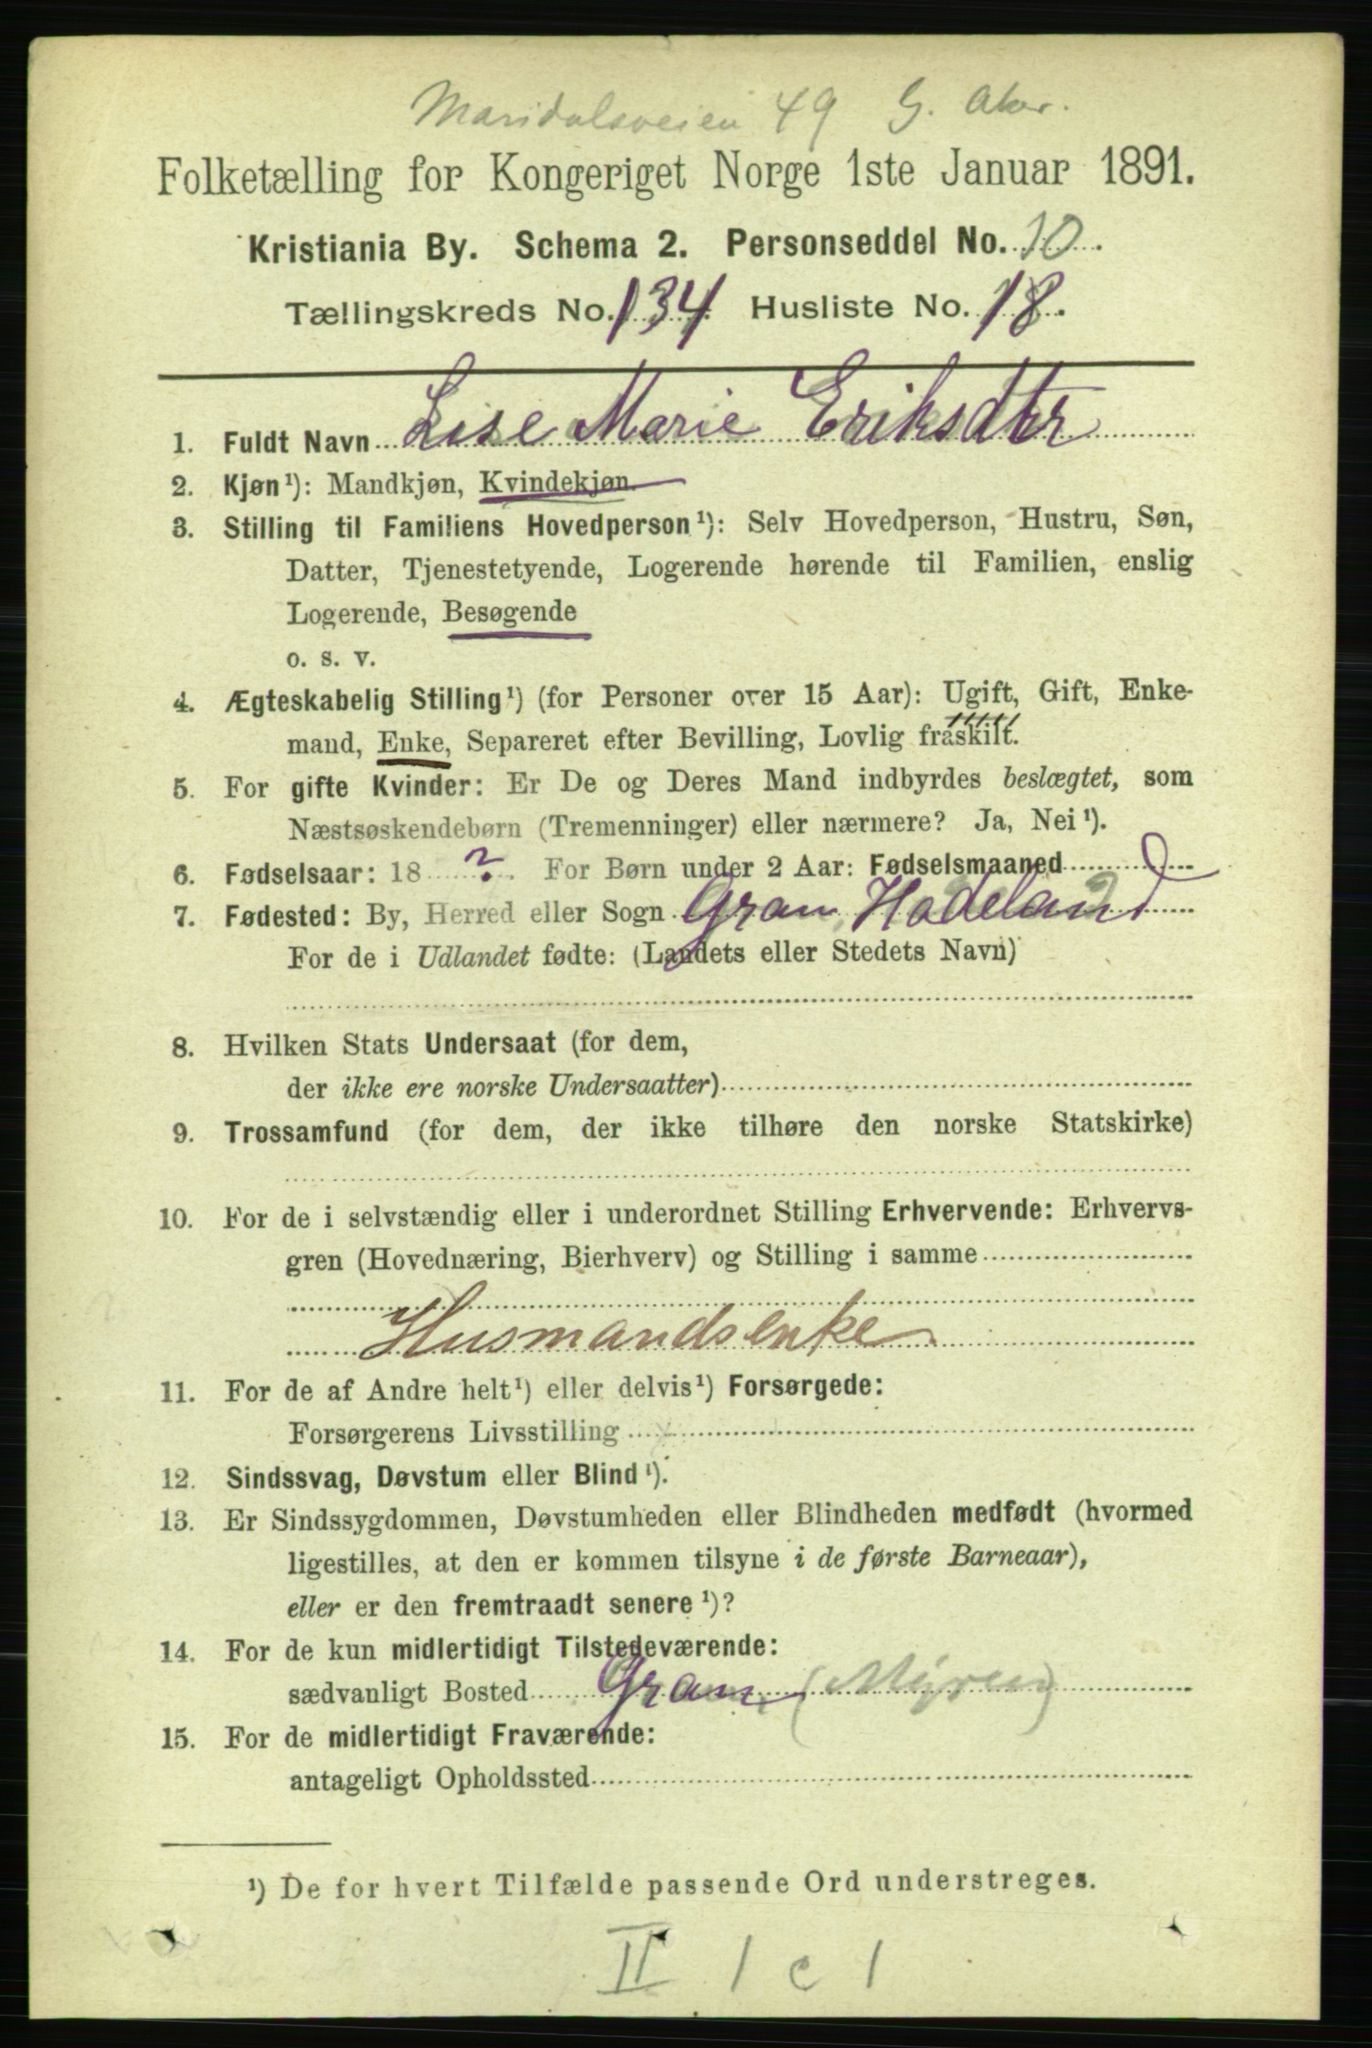 Maridalsveien 49 G. Aker.
Folketælling for Kongeriget Norge 1ste Januar 1891.
Kristiania By. Schema 2. Personseddel No. 10.
Tællingskreds No. 134 Husliste No. 18.
1. Fuldt Navn Lise Marie Eriksdtr
2. Kjøn¹): Mandkjøn, Kvindekjøn.
3. Stilling til Familiens Hovedperson¹): Selv Hovedperson, Hustru, Søn,
Datter, Tjenestetyende, Logerende hørende til Familien, enslig
Logerende, Besøgende
o. s. v.
4. Ægteskabelig Stilling¹) (for Personer over 15 Aar): Ugift, Gift, Enke-
mand, Enke, Separeret efter Bevilling, Lovlig fraskilt.
5. For gifte Kvinder: Er De og Deres Mand indbyrdes beslægtet, som
Næstsøskendebørn (Tremenninger) eller nærmere? Ja, Nei¹).
6. Fødselsaar: 18 ? . For Børn under 2 Aar: Fødselsmaaned
7. Fødested: By, Herred eller Sogn Gran, Hadeland
For de i Udlandet fødte: (Landets eller Stedets Navn)
8. Hvilken Stats Undersaat (for dem,
der ikke ere norske Undersaatter)
9. Trossamfund (for dem, der ikke tilhøre den norske Statskirke)
10. For de i selvstændig eller i underordnet Stilling Erhvervende: Erhvervs-
gren (Hovednæring, Bierhverv) og Stilling i samme
Husmandsenke
11. For de af Andre helt¹) eller delvis¹) Forsørgede:
Forsørgerens Livsstilling
12. Sindssvag, Døvstum eller Blind¹).
13. Er Sindssygdommen, Døvstumheden eller Blindheden medfødt (hvormed
ligestilles, at den er kommen tilsyne i de første Barneaar),
eller er den fremtraadt senere¹)?
14. For de kun midlertidigt Tilstedeværende:
sædvanligt Bosted Gran (Myren)
15. For de midlertidigt Fraværende:
antageligt Opholdssted
¹) De for hvert Tilfælde passende Ord understreges.
II 1 c 1